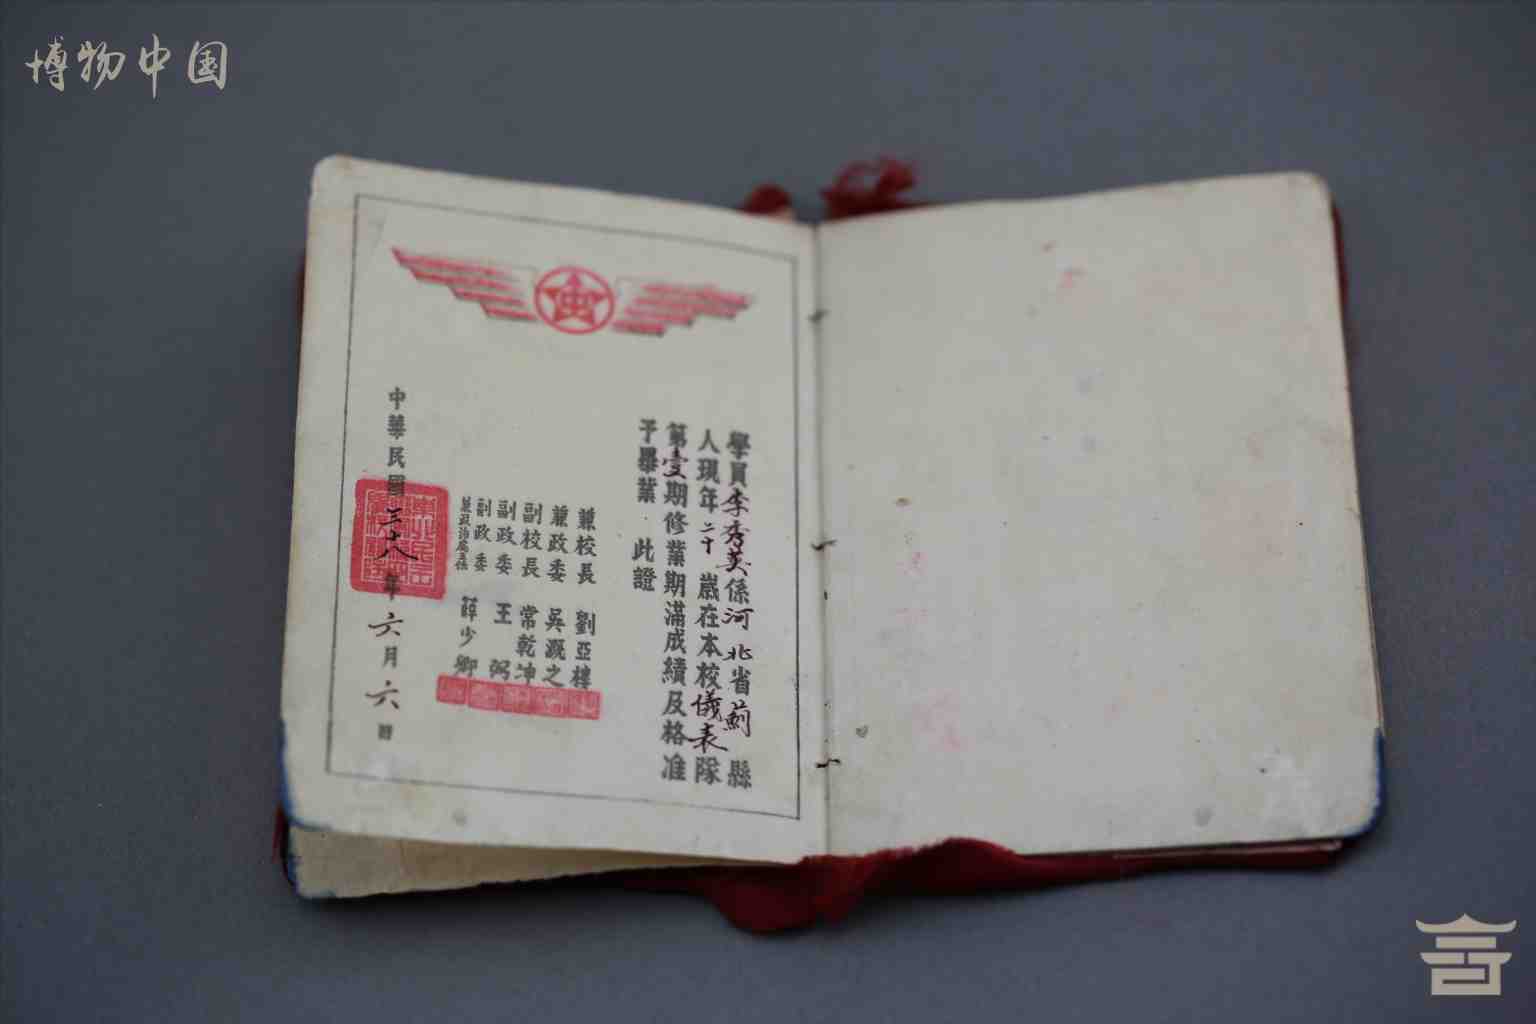 博物中国
學員李秀英係河北省薊縣
人現年二十歲在本校儀表隊
第壹期修業期滿成績及格准
予畢業．此證
兼校長 劉亞樓
兼政委 吳溉之
副校長 常乾坤
副政委 王弼
副政委
兼政治處長 薛少卿
中華民國三十八年六月六日